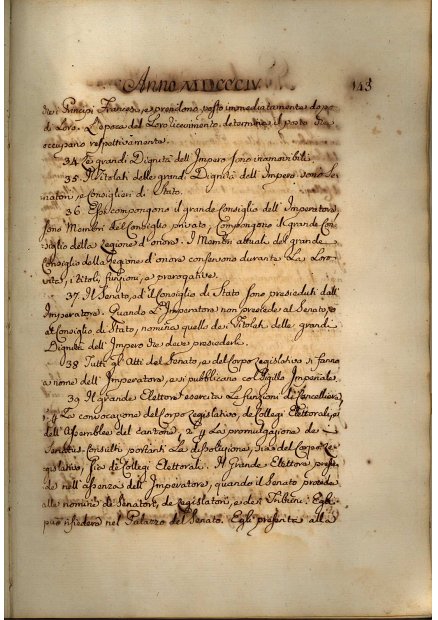 Anno MDCCCIV 143
dei Principi Francesi, e prendono posto immediatamente dopo
di Loro. L'epoca del Loro ricevimento determina il posto che
occupano respettivamente.
34. Le grandi Dignità dell'Impero sono inamovibili.
35. I Titolati delle grandi Dignità dell'Impero sono Se-
natori, e Consiglieri di Stato.
36. Essi compongono il grande Consiglio dell'Imperatore
sono Membri del Consiglio privato, Compongono il grande Con-
siglio della Legione d'onore. I Membri attuali del grande
Consiglio della Legione d'onore conservano durante La Loro
vita, i titoli, funzioni, e prerogative.
37. Il Senato, ed il Consiglio di Stato sono presieduti dall'
Imperatore. Quando L'Imperatore non presiede al Senato, o
al Consiglio di Stato, nomina quello dei Titolati delle grandi
Dignità dell'Impero che deve presiederli.
38 Tutti gli Atti del Senato, e del Corpo Legislativo si fanno
a nome dell'Imperatore, e si pubblicano col Sigillo Imperiale.
39. Il grande Elettore esercita Le funzioni di Cancelliere
La convocazione del Corpo Legislativo, de Collegi Elettorali, e
dell'Assemblee del cantone, La promulgazione de
Senatus-Consulti portanti La dissoluzione, sia del Corpo Le-
gislativo, sia de Collegi Elettorali. Il Grande Elettore presie-
de nell'assenza dell'Imperatore, quando il Senato procede
alle nomine de Senatori, de Legislatori, e dei Tribuni. Egli
può risiedere nel Palazzo del Senato. Egli presenta alla